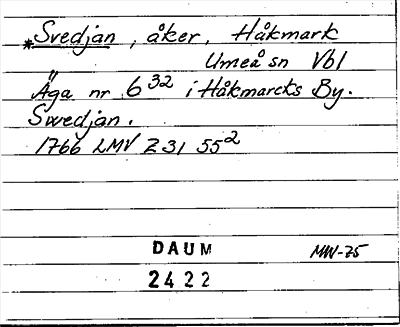 *Svedjan, åker, Håkmark
Umeå sn Vbl
Äga nr 6³² i Håkmarcks By.
Swedjan.
1766 LMV Z31 55²
DAUM MW-75
2422